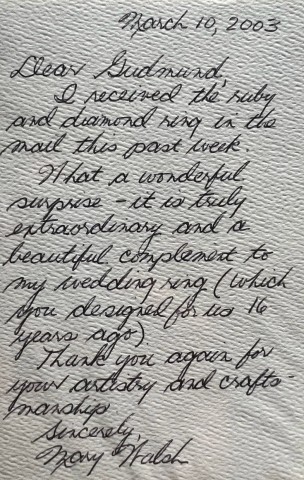 March 10, 2003
Dear Gudmund,
I received the ruby
and diamond ring in the
mail this past week.
What a wonderful
surprise - it is truly
extraordinary and a
beautiful complement to
my wedding ring (which
you designed for us 16
years ago)
Thank you again for
your artistry and crafts-
manship
Sincerely,
Mary Walsh